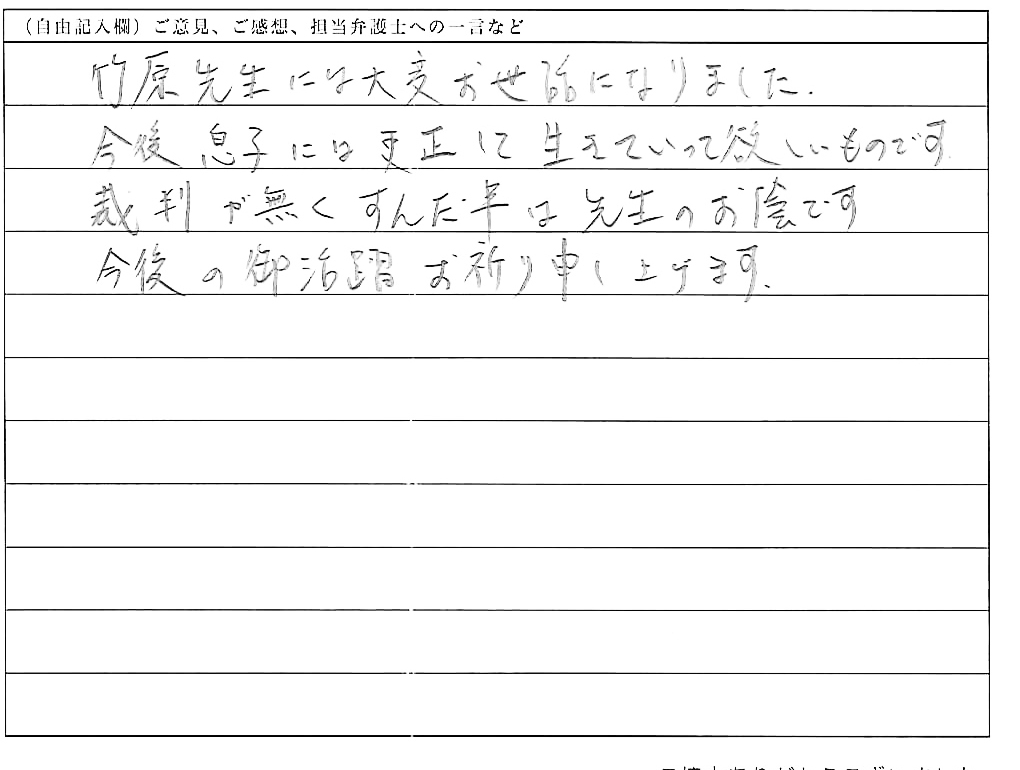 （自由記入欄）ご意見、ご感想、担当弁護士への一言など
竹原先生には大変お世話になりました.
今後息子には更正して生きていって欲しいものです.
裁判が無くすんだ事は先生のお陰です
今後の御活躍お祈り申し上げます.